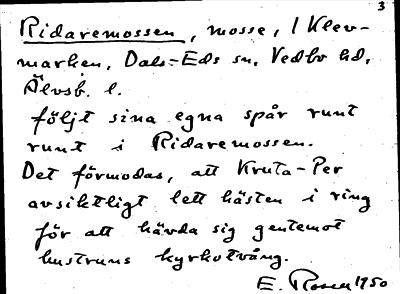 3
Ridaremossen, mosse, i Klev-
marken, Dals-Eds sn, Vedbo hd,
Älvsb. l.
följt sina egna spår runt
runt i Ridaremossen.
Det förmodas, att Kruta-Per
avsiktligt lett hästen i ring
för att hävda sig gentemot
hustruns kyrkotvång.
E. Rosen 1950